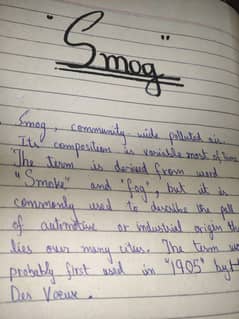 "Smog"
Smog, community-wide polluted air.
Its composition is variable most of
The term is derived from word
"Smoke" and "fog", but it is
commonly used to describe the pall
of automotive or industrial origin that
lies over many cities. The term was
probably first used in "1905" by H
Des Voeux.